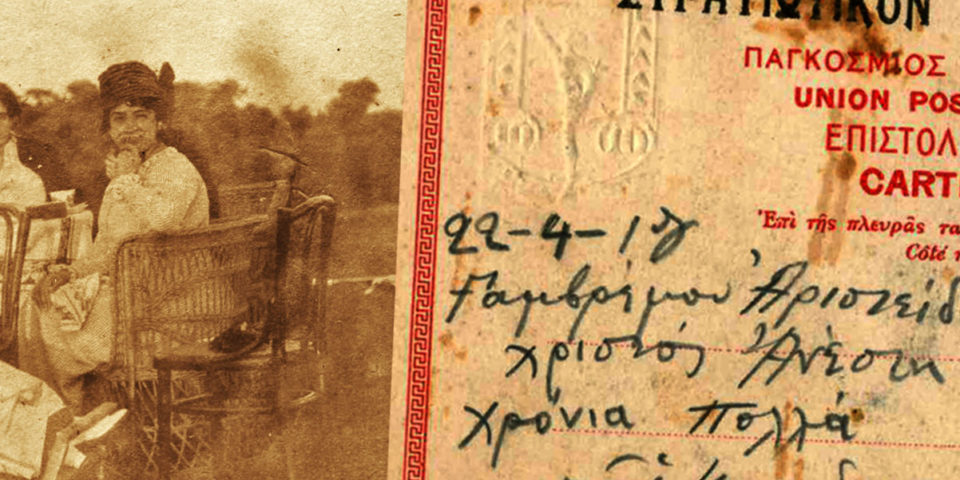 ΣΤΡΑΤΙΩΤΙΚΟΝ
ΠΑΓΚΟΣΜΙΟΣ
UNION POS
ΕΠΙΣΤΟΛ
CART
Ἐπὶ τῆς πλευρᾶς τα
Côté
22-4-1
Γαμβρέ μου Ἀριστείδ
Χριστός Ἀνέστη
Χρόνια Πολλά